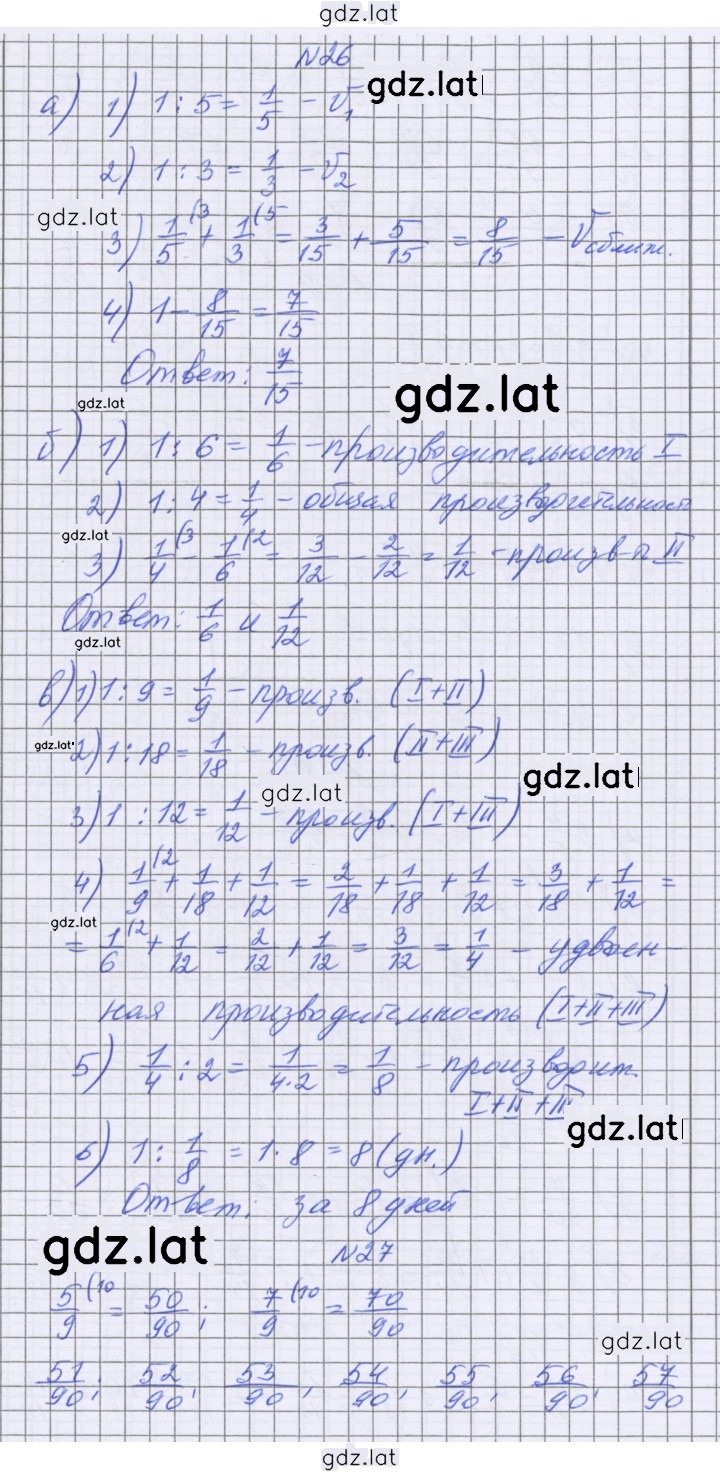 gdz.lat
N26
gdz.lat
а) 1) 1 : 5 = 1/5 - V₁
2) 1 : 3 = 1/3 - V₂
gdz.lat
3) 1/5 (3 + 1/3 (5 = 3/15 + 5/15 = 8/15 - Vсближ.
4) 1 - 8/15 = 7/15
Ответ: 7/15
gdz.lat
gdz.lat
б) 1) 1 : 6 = 1/6 - производительность I
2) 1 : 4 = 1/4 - общая производительность
gdz.lat
3) 1/4 (3 - 1/6 (2 = 3/12 - 2/12 = 1/12 - произв-ть II
Ответ: 1/6 и 1/12
gdz.lat
в) 1) 1 : 9 = 1/9 - произв. (I+II)
gdz.lat
2) 1 : 18 = 1/18 - произв. (II+III)
gdz.lat
gdz.lat
3) 1 : 12 = 1/12 - произв. (I+III)
4) 1/9 (2 + 1/18 + 1/12 = 2/18 + 1/18 + 1/12 = 3/18 + 1/12 =
gdz.lat
= 1/6 (2 + 1/12 = 2/12 + 1/12 = 3/12 = 1/4 - удвоен-
ная производительность (I+II+III)
5) 1/4 : 2 = 1/4·2 = 1/8 - производит.
I+II+III
gdz.lat
6) 1 : 1/8 = 1 · 8 = 8 (дн.)
Ответ: за 8 дней
gdz.lat
N27
5/9 (10 = 50/90 ; 7/9 (10 = 70/90
gdz.lat
51/90, 52/90, 53/90, 54/90, 55/90, 56/90, 57/90
gdz.lat